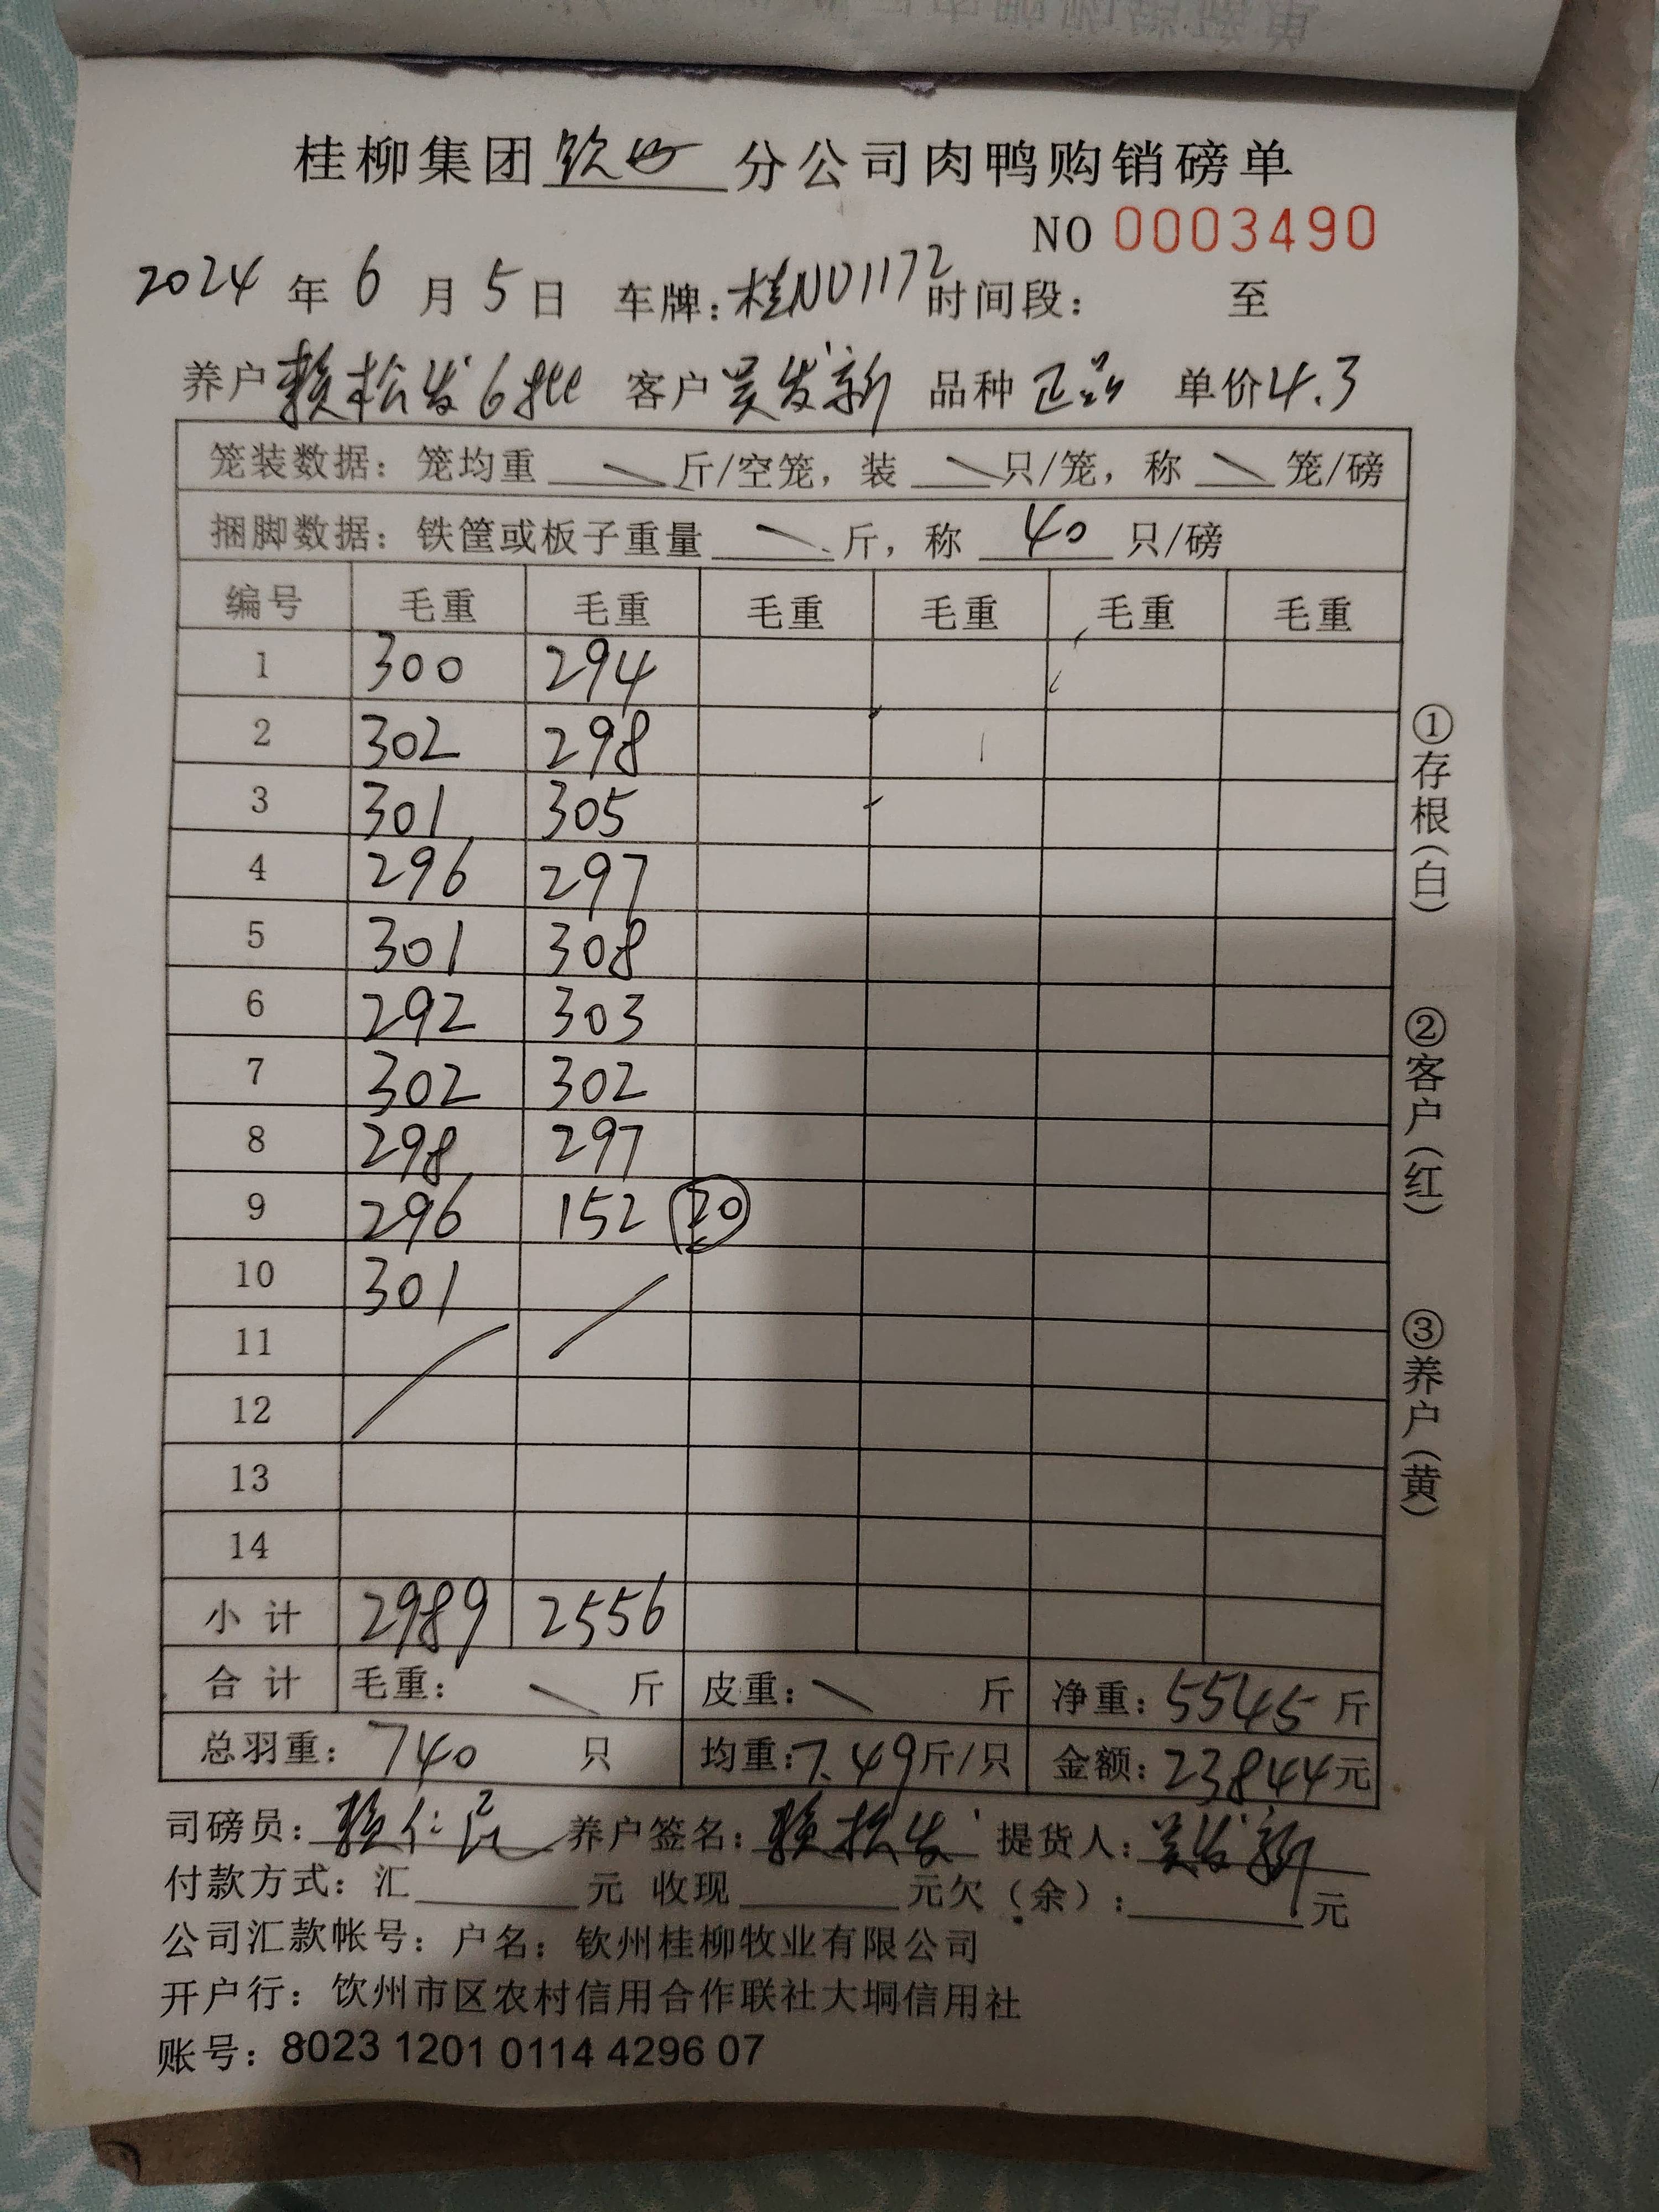 桂柳集团钦州分公司肉鸭购销磅单
NO 0003490
2024年6月5日 车牌:桂ND1172 时间段: 至
养户赖松发6批 客户吴发新 品种正品 单价4.3
笼装数据:笼均重 斤/空笼,装 只/笼,称 笼/磅
捆脚数据:铁筐或板子重量 斤,称 40 只/磅
编号 毛重 毛重 毛重 毛重 毛重 毛重
1 300 294
2 302 298
3 301 305
4 296 297
5 301 308
6 292 303
7 302 302
8 298 297
9 296 152 20
10 301
11
12
13
14
小计 2989 2556
合计 毛重: 斤 皮重: 斤 净重:5545斤
总羽重:740 只 均重:7.49斤/只 金额:23844元
司磅员: 养户签名:赖松发 提货人:吴发新
付款方式:汇 元 收现 元欠(余): 元
公司汇款帐号:户名:钦州桂柳牧业有限公司
开户行:饮州市区农村信用合作联社大垌信用社
账号:8023 1201 0114 4296 07
①存根(白)
②客户(红)
③养户(黄)